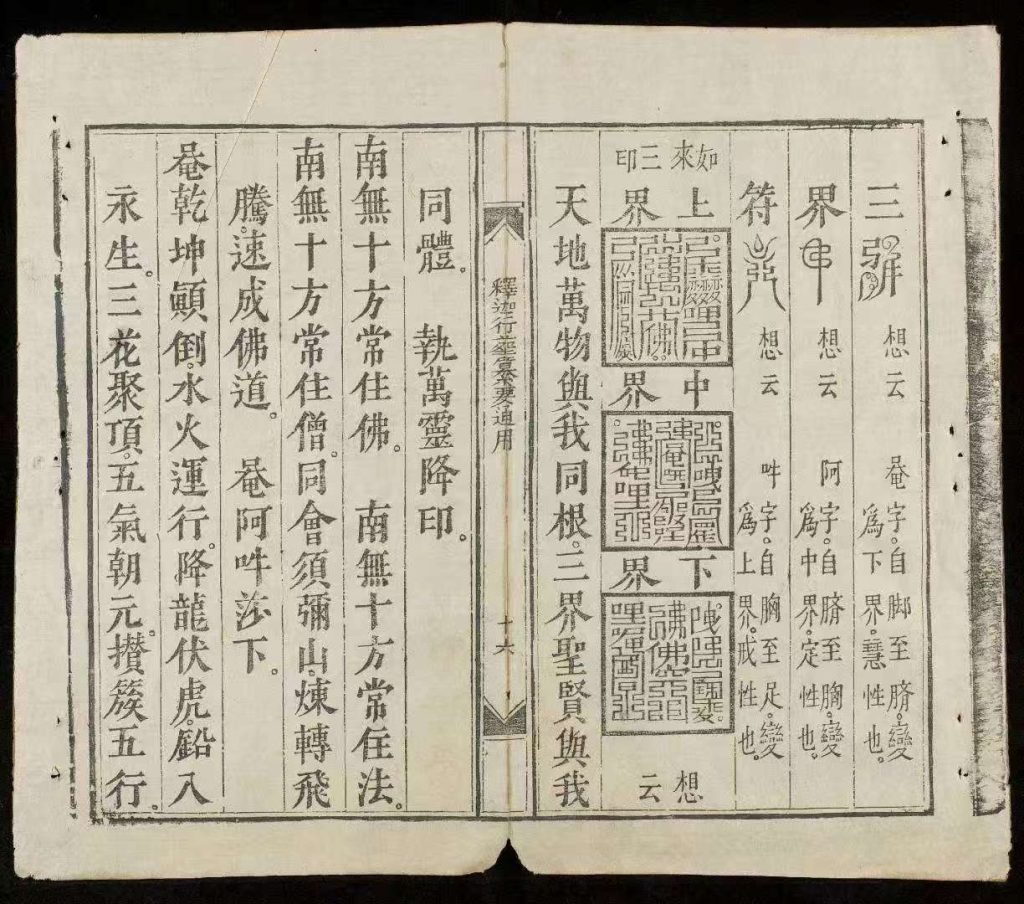 三 想云 菴字自脚至臍。變爲下界。慧性也。
界 想云 阿字自臍至胸。變爲中界。定性也。
符 想云 吽字自胸至足。變爲上界。戒性也。
如來三印 上界 中界 下界 想云
天地萬物與我同根。三界聖賢與我
釋迦行 通用 十六
同體。 執萬靈降印。
南無十方常住佛。 南無十方常住法。
南無十方常住僧。同會須彌山。煉轉飛
騰。速成佛道。 菴阿吽莎下。
菴乾坤顚倒。水火運行。降龍伏虎。鉛入
永生。三花聚頂。五氣朝元。攅簇五行。